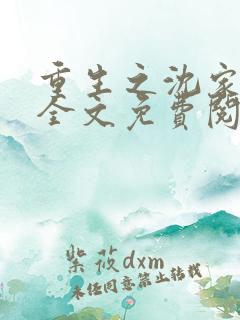 重生之沈家
全文免費閱
紫莜dxm
未经同意禁止转载